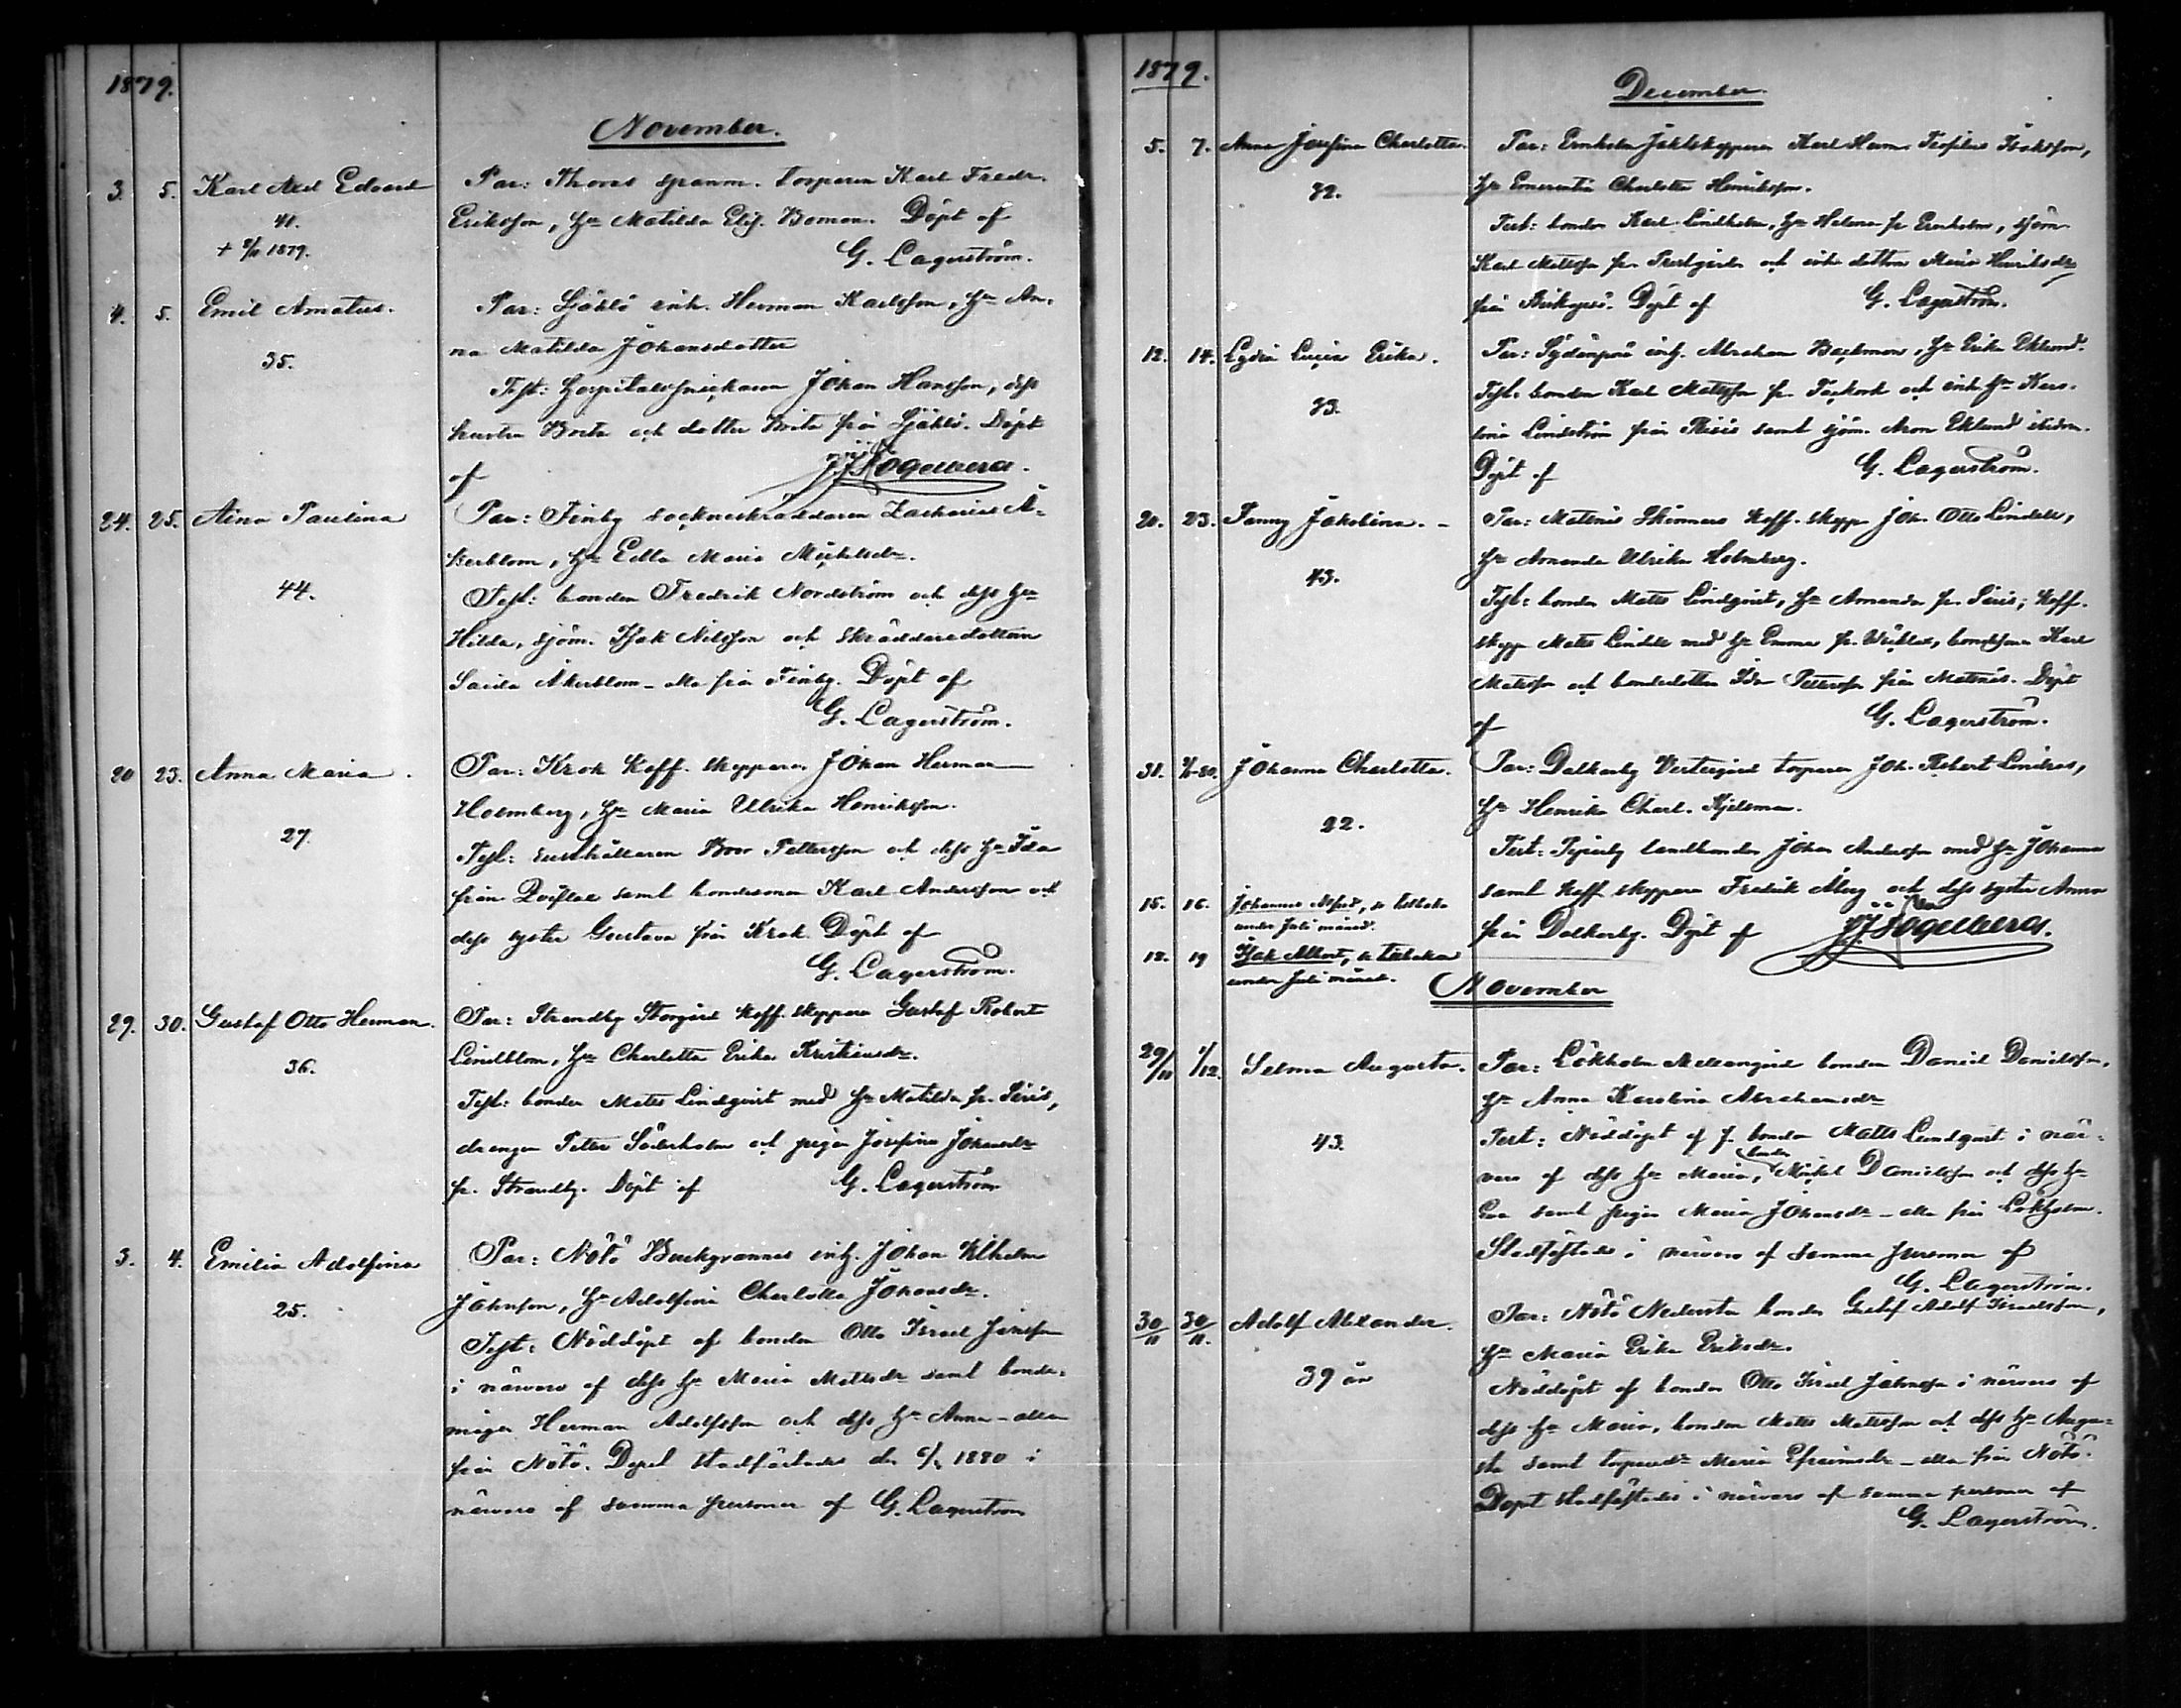 1879.
November.
3. 5. Karl Axel Edvard
41.
+ 9/11 1879.
Par: Thoras spanm. torparen Karl Fredr.
Eriksson, Hu Matilda Elis. Boman. Döpt af
G. Lagerström.
4. 5. Emil Amatus.
35.
Par: Själö inh. Herman Karlsson, Hu An-
na Matilda Johansdotter
Test: Hospitalssnickaren Johan Hansson, dess
hustru Brita och dotter Brita från Själö. Döpt
af
24. 25. Aina Paulina
44.
Par: Finby sockneskräddaren Zacharias Å-
kerblom, Hu Edla Maria Mickelsdr.
Test: bonden Fredrik Nordström och dess Hu
Hilda, sjöm. Isak Nilsson och skräddaredottern
Saida Åkerblom - alla från Finby. Döpt af
G. Lagerström.
20 23. Anna Maria.
27.
Par: Krok Koff. skepparen Johan Herman
Holmberg, Hu Maria Ulrika Henriksson.
Test: Pettersson och dess Hu Ida
från samt bondesonen Karl Andersson och
dess syster Gustava från Krok. Döpt af
G. Lagerström.
29. 30. Gustaf Otto Herman.
36.
Par: Strandby Storgård Koff. skeppare Gustaf Robert
Lindblom, Hu Charlotta Erika Kristiansdr.
Test: bonden Mats Lindqvist med Hu Matilda fr.
drängen Petter Söderholm och pigan Josefina Johansdr
fr. Strandby. Döpt af G. Lagerström
3. 4. Emilia Adolfina
25.
Par: Nötö inh. Johan Wilhelm
Johnsson, Hu Adolfina Charlotta Johansdr.
Test: Nöddöpt af bonden Otto Israel
i närvaro af dess Hu Maria Mattsdr samt bonde-
mågen Herman Adolfsson och dess Hu Anna - alla
från Nötö. Dopet stadfästades 1880 i
närvaro af samma personer af G. Lagerström
1879.
December.
5. 7. Anna Josefina Charlotta.
32.
Par: Jaktskepparen Karl Herm. Teofilus Isaksson,
Hu Emerentia Charlotta Henriksson.
Test: bonden Karl Lindholm, Hu Helena fr. , sjöm.
Karl Mattsson fr. och inh. dottern Maria Henriksdr
från Biskopsö. Döpt af G. Lagerström.
12. 14. Lydia Lucia Erika.
33.
Par: inh. Abraham Backman, Hu Erika Eklund.
Test: bonden Karl Mattsson fr. och inh. Hu Karo-
lina Lindström från samt sjöm. Aron Eklund ibidem.
Döpt af G. Lagerström.
20. 23. Fanny Jakobina. -
43.
Par: Mattnäs Skinnars Koff. skepp. Joh. Otto Lindell,
Hu Amanda Ulrika Holmberg.
Test: bonden Matts Lindqvist, Hu Amanda fr. ; Koff.
skepp. Matts Lindell med Hu Emma fr. , bondesonen Karl
Mattsson och bondedottern Ida Pettersson från Mattnäs. Döpt
af G. Lagerström.
31. Johanna Charlotta.
22.
Par: Dalkarby Vestergård torparen Joh. Robert Lindroos,
Hu Henrika Charl.
Test: landbonden Johan Andersson med Hu Johanna
samt Koff. skeppare Fredrik Åberg och dess syster Anna
från Dalkarby. Döpt af
15. 16. Johannes , se tillbaka
under Juli månad.
12. 19 Isak Albert, se tillbaka
under Juli månad.
November
29/11 1/12. Selma Augusta.
43.
Par: Lökholm Mellangård bonden Daniel Danielsson,
Hu Anna Karolina Abrahamsdr
Test: Nöddöpt af f. bonden Matts Lundqvist i när-
varo af dess Hu Maria, bonden Mickel Danielsson och dess Hu
Eva samt pigan Maria Johansdr - alla från Lökholm.
Stadfästades i närvaro af samma personer af
G. Lagerström.
30/11 30/11. Adolf Alexander.
39 år
Par: Nötö Nedersta bonden Gustaf Adolf Israelsson,
Hu Maria Erika Eriksdr.
Nöddöpt af bonden Otto Israel Johnsson i närvaro af
dess Hu Maria, bonden Matts Mattsson och dess Hu Augu-
sta samt Maria Efraimsdr - alla från Nötö.
Dopet stadfästades i närvaro af samma personer af
G. Lagerström.